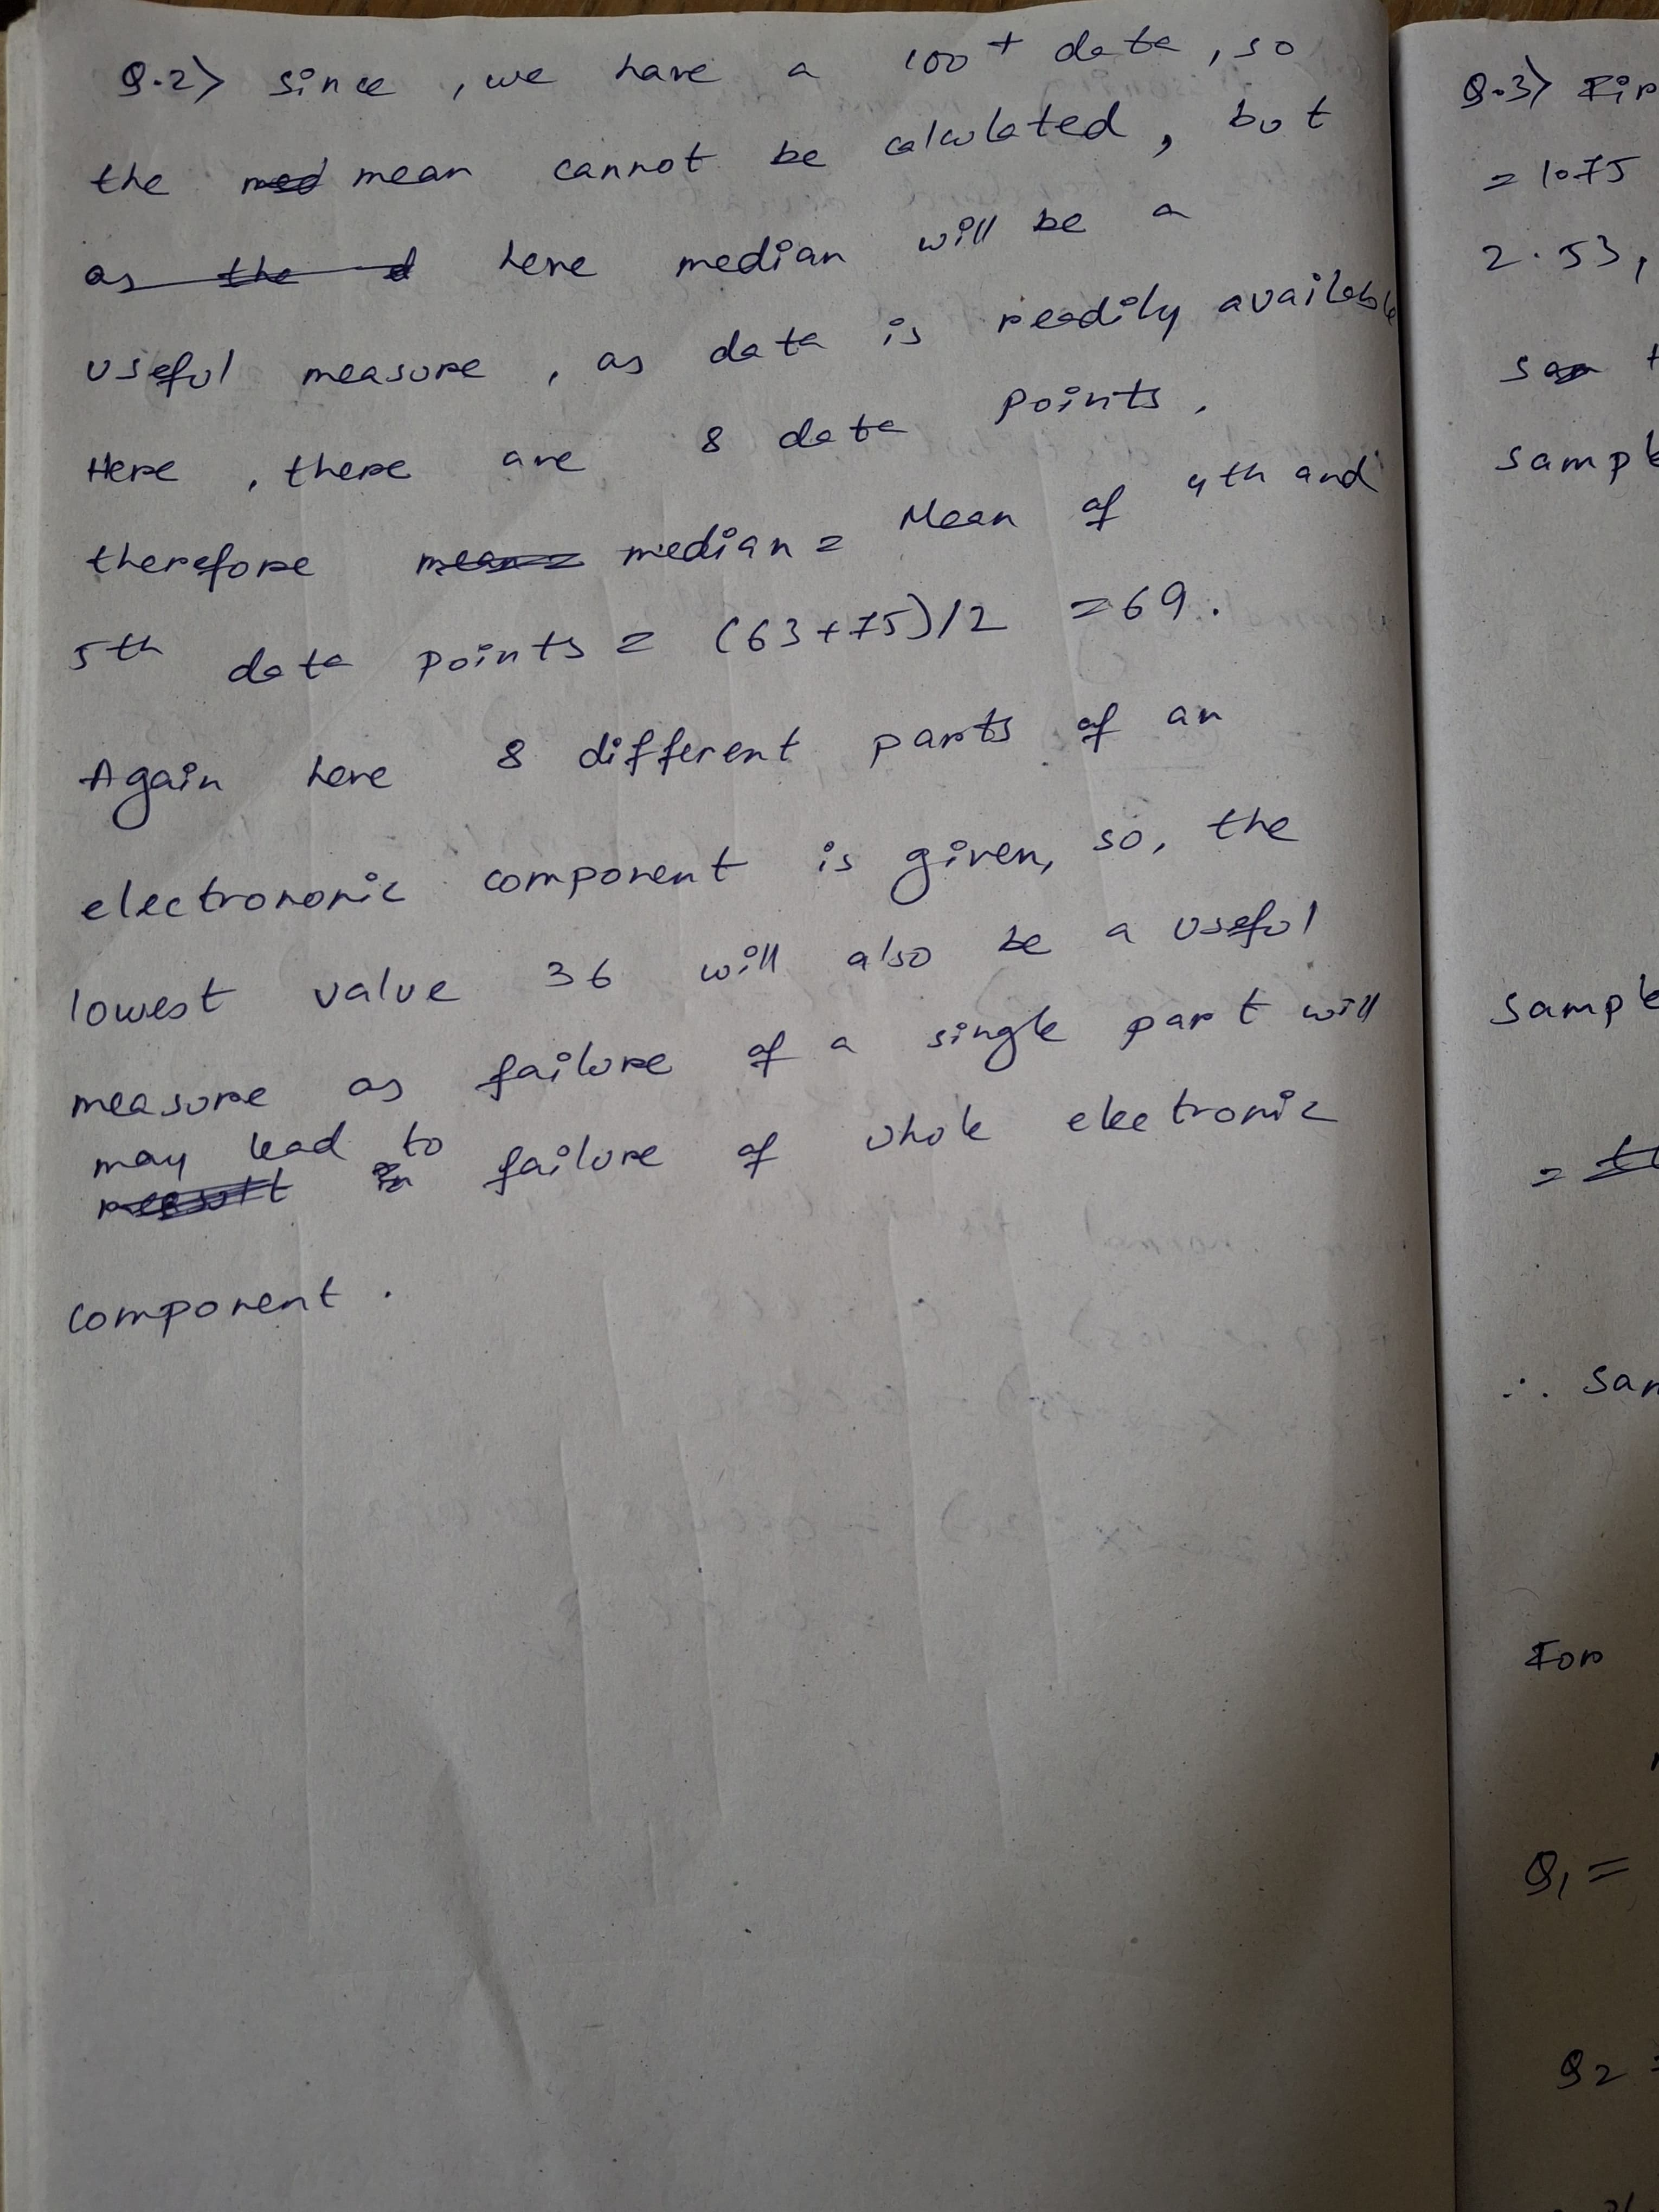 Q.2) Since , we have a 100+ data , so
the mean cannot be calculated , but
here median will be a
useful measure , as data is readily available
Here , there are 8 data points .
therefore median = Mean of 4th and
5th data points = (63+75)/2 = 69 .
Again here 8 different parts of an
electrononic component is given, so, the
lowest value 36 will also be a useful
measure as failure of a single part will
may lead to failure of whole electronic
component .
Q.3)
= 1.75
2.53,
Sample
For
Q1 =
Q2